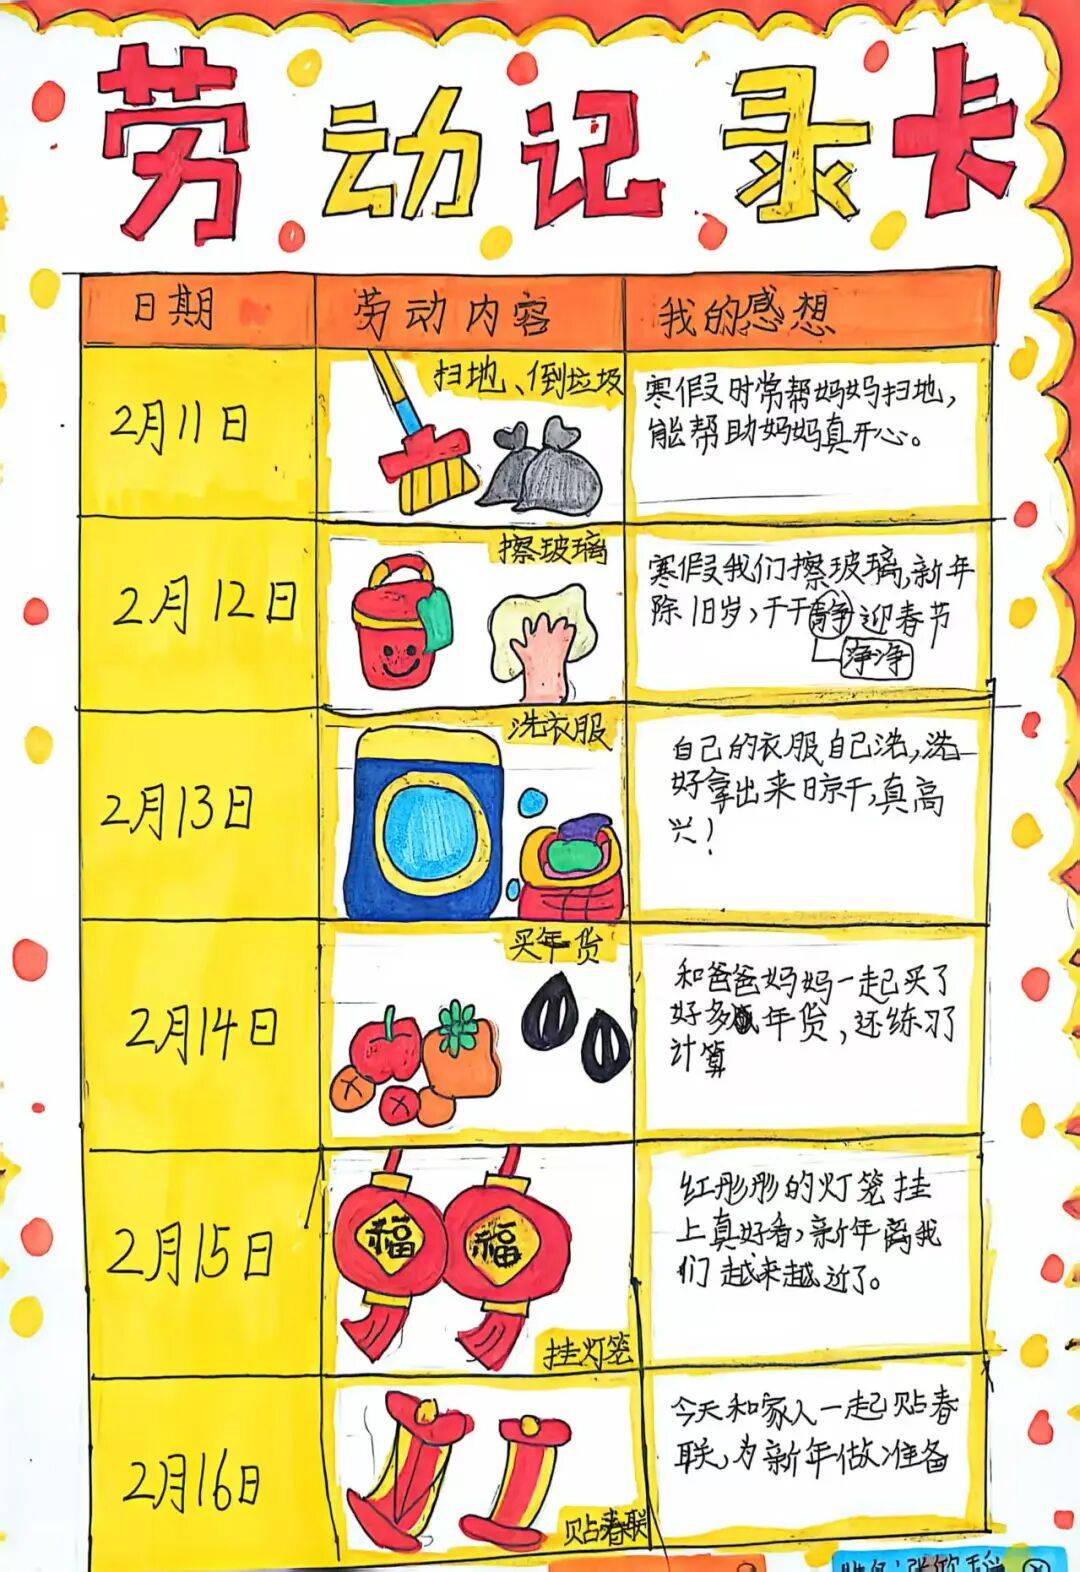 劳动记录卡
日期 劳动内容 我的感想
2月11日
扫地、倒垃圾
寒假时常帮妈妈扫地,
能帮助妈妈真开心。
2月12日
擦玻璃
寒假我们擦玻璃,新年
除旧岁,干干静迎春节
净净
2月13日
洗衣服
自己的衣服自己洗,洗
好拿出来晾干,真高
兴!
2月14日
买年货
和爸爸妈妈一起买了
好多年货,还练习了
计算
2月15日
福
福
挂灯笼
红彤彤的灯笼挂
上真好看,新年离我
们越来越近了。
2月16日
贴春联
今天和家人一起贴春
联,为新年做准备